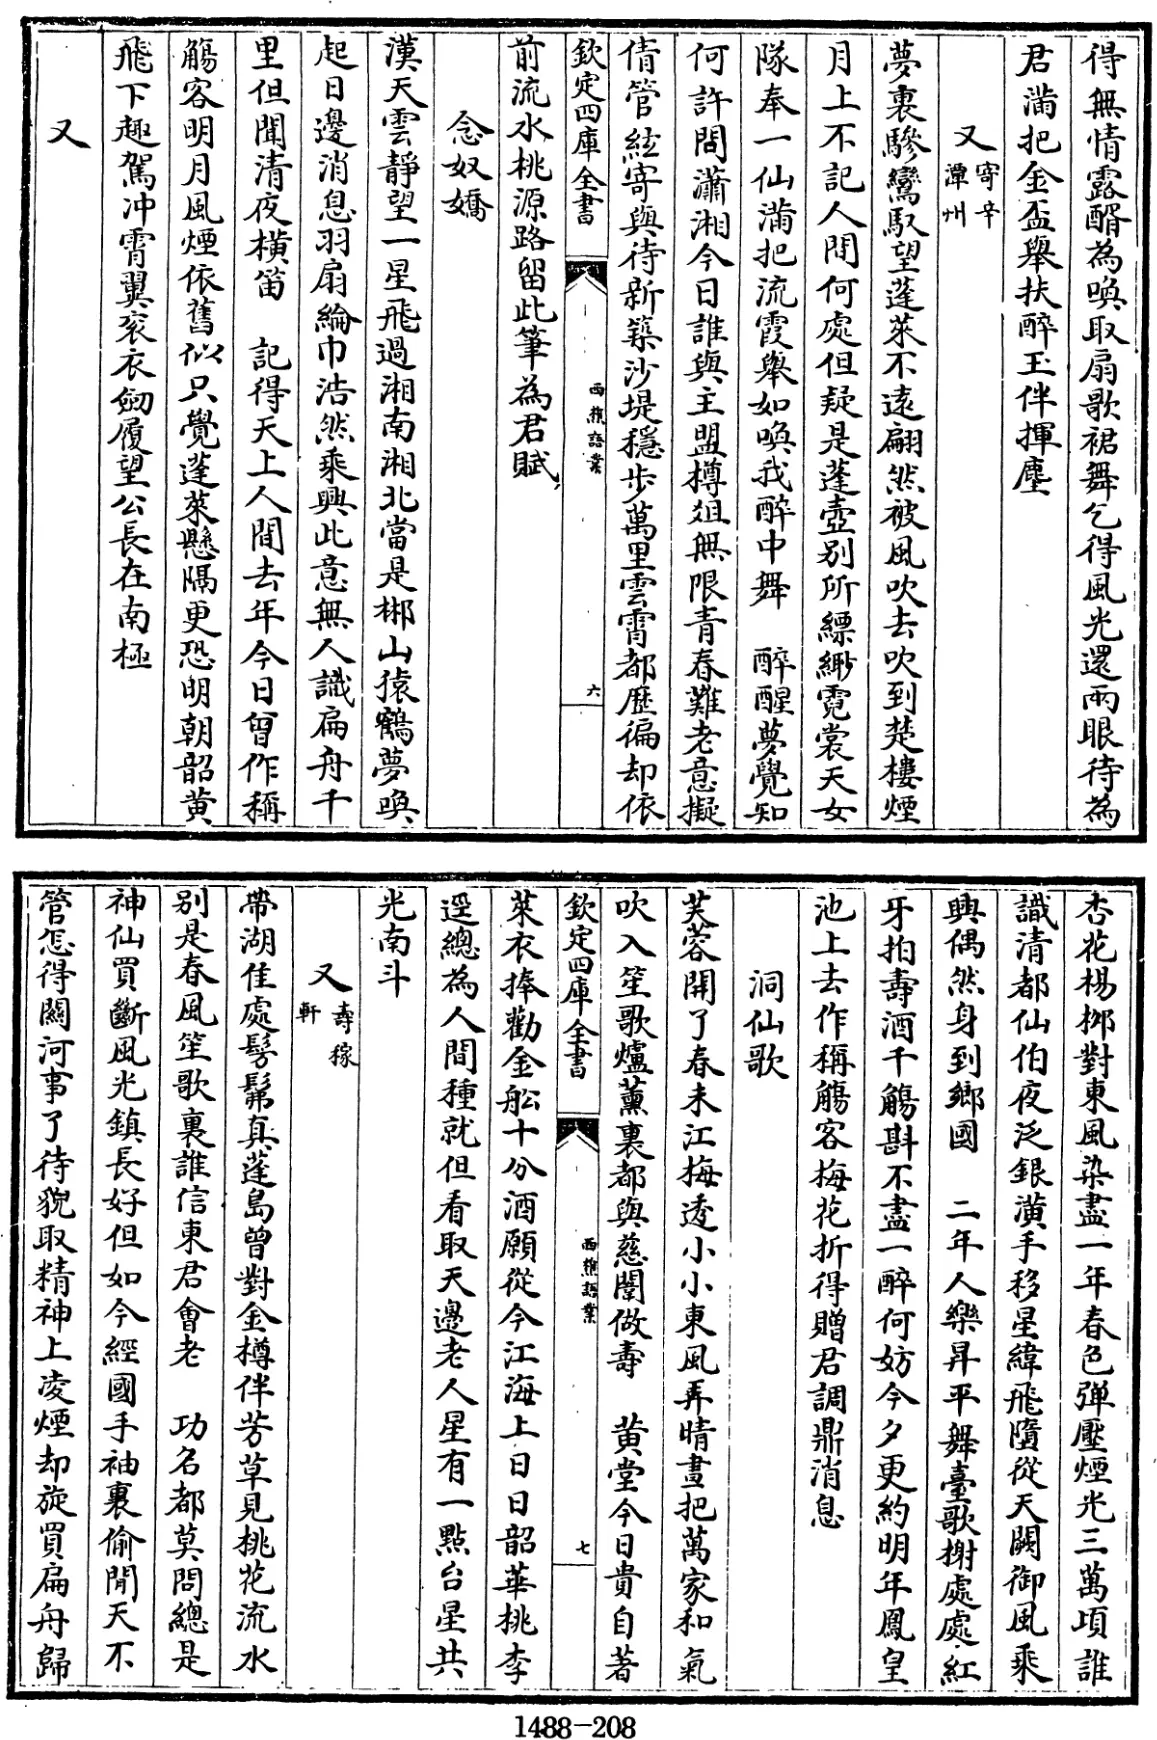 得無情露醑為喚取扇歌裙舞乞得風光還兩眼待為
君滿把金盃舉扶醉玉伴揮塵
又寄辛潭州
夢裏驂鸞馭望蓬萊不遠翩然被風吹去吹到楚樓煙
月上不記人間何處但疑是蓬壺别所縹緲霓裳天女
隊奉一仙滿把流霞舉如喚我醉中舞　醉醒夢覺知
何許問瀟湘今日誰與主盟樽俎無限青春難老意擬
倩管絃寄與待新築沙堤穩步萬里雲霄都歴徧却依
欽定四庫全書　西樵語業　六
前流水桃源路留此筆為君賦
念奴嬌
漢天雲靜望一星飛過湘南湘北當是郴山猿鶴夢喚
起日邊消息羽扇綸巾浩然乘興此意無人識扁舟千
里但聞清夜横笛　記得天上人間去年今日曾作稱
觴客明月風煙依舊似只覺蓬萊懸隔更恐明朝韶黄
飛下趣駕冲霄翼衮衣劒履望公長在南極
又
杏花楊栁對東風染盡一年春色彈壓煙光三萬項誰
識清都仙伯夜泛銀潢手移星緯飛墮從天闕御風乘
興偶然身到鄉國　二年人樂昇平舞臺歌榭處處紅
牙拍壽酒千觴斟不盡一醉何妨今夕更約明年鳳皇
池上去作稱觴客梅花折得贈君調鼎消息
洞仙歌
芙蓉開了春未江梅透小小東風弄晴晝把萬家和氣
吹入笙歌爐薰裏都與慈闈做壽　黄堂今日貴自著
欽定四庫全書　西樵語業　七
萊衣捧勸金船十分酒願從今江海上日日韶華桃李
逕總為人間種就但看取天邊老人星有一點台星共
光南斗
又壽稼軒
帶湖佳處髣髴真蓬島曾對金樽伴芳草見桃花流水
别是春風笙歌裏誰信東君會老　功名都莫問總是
神仙買斷風光鎮長好但如今經國手袖裏偷閒天不
管怎得闗河事了待貌取精神上凌煙却旋買扁舟歸
1488-208